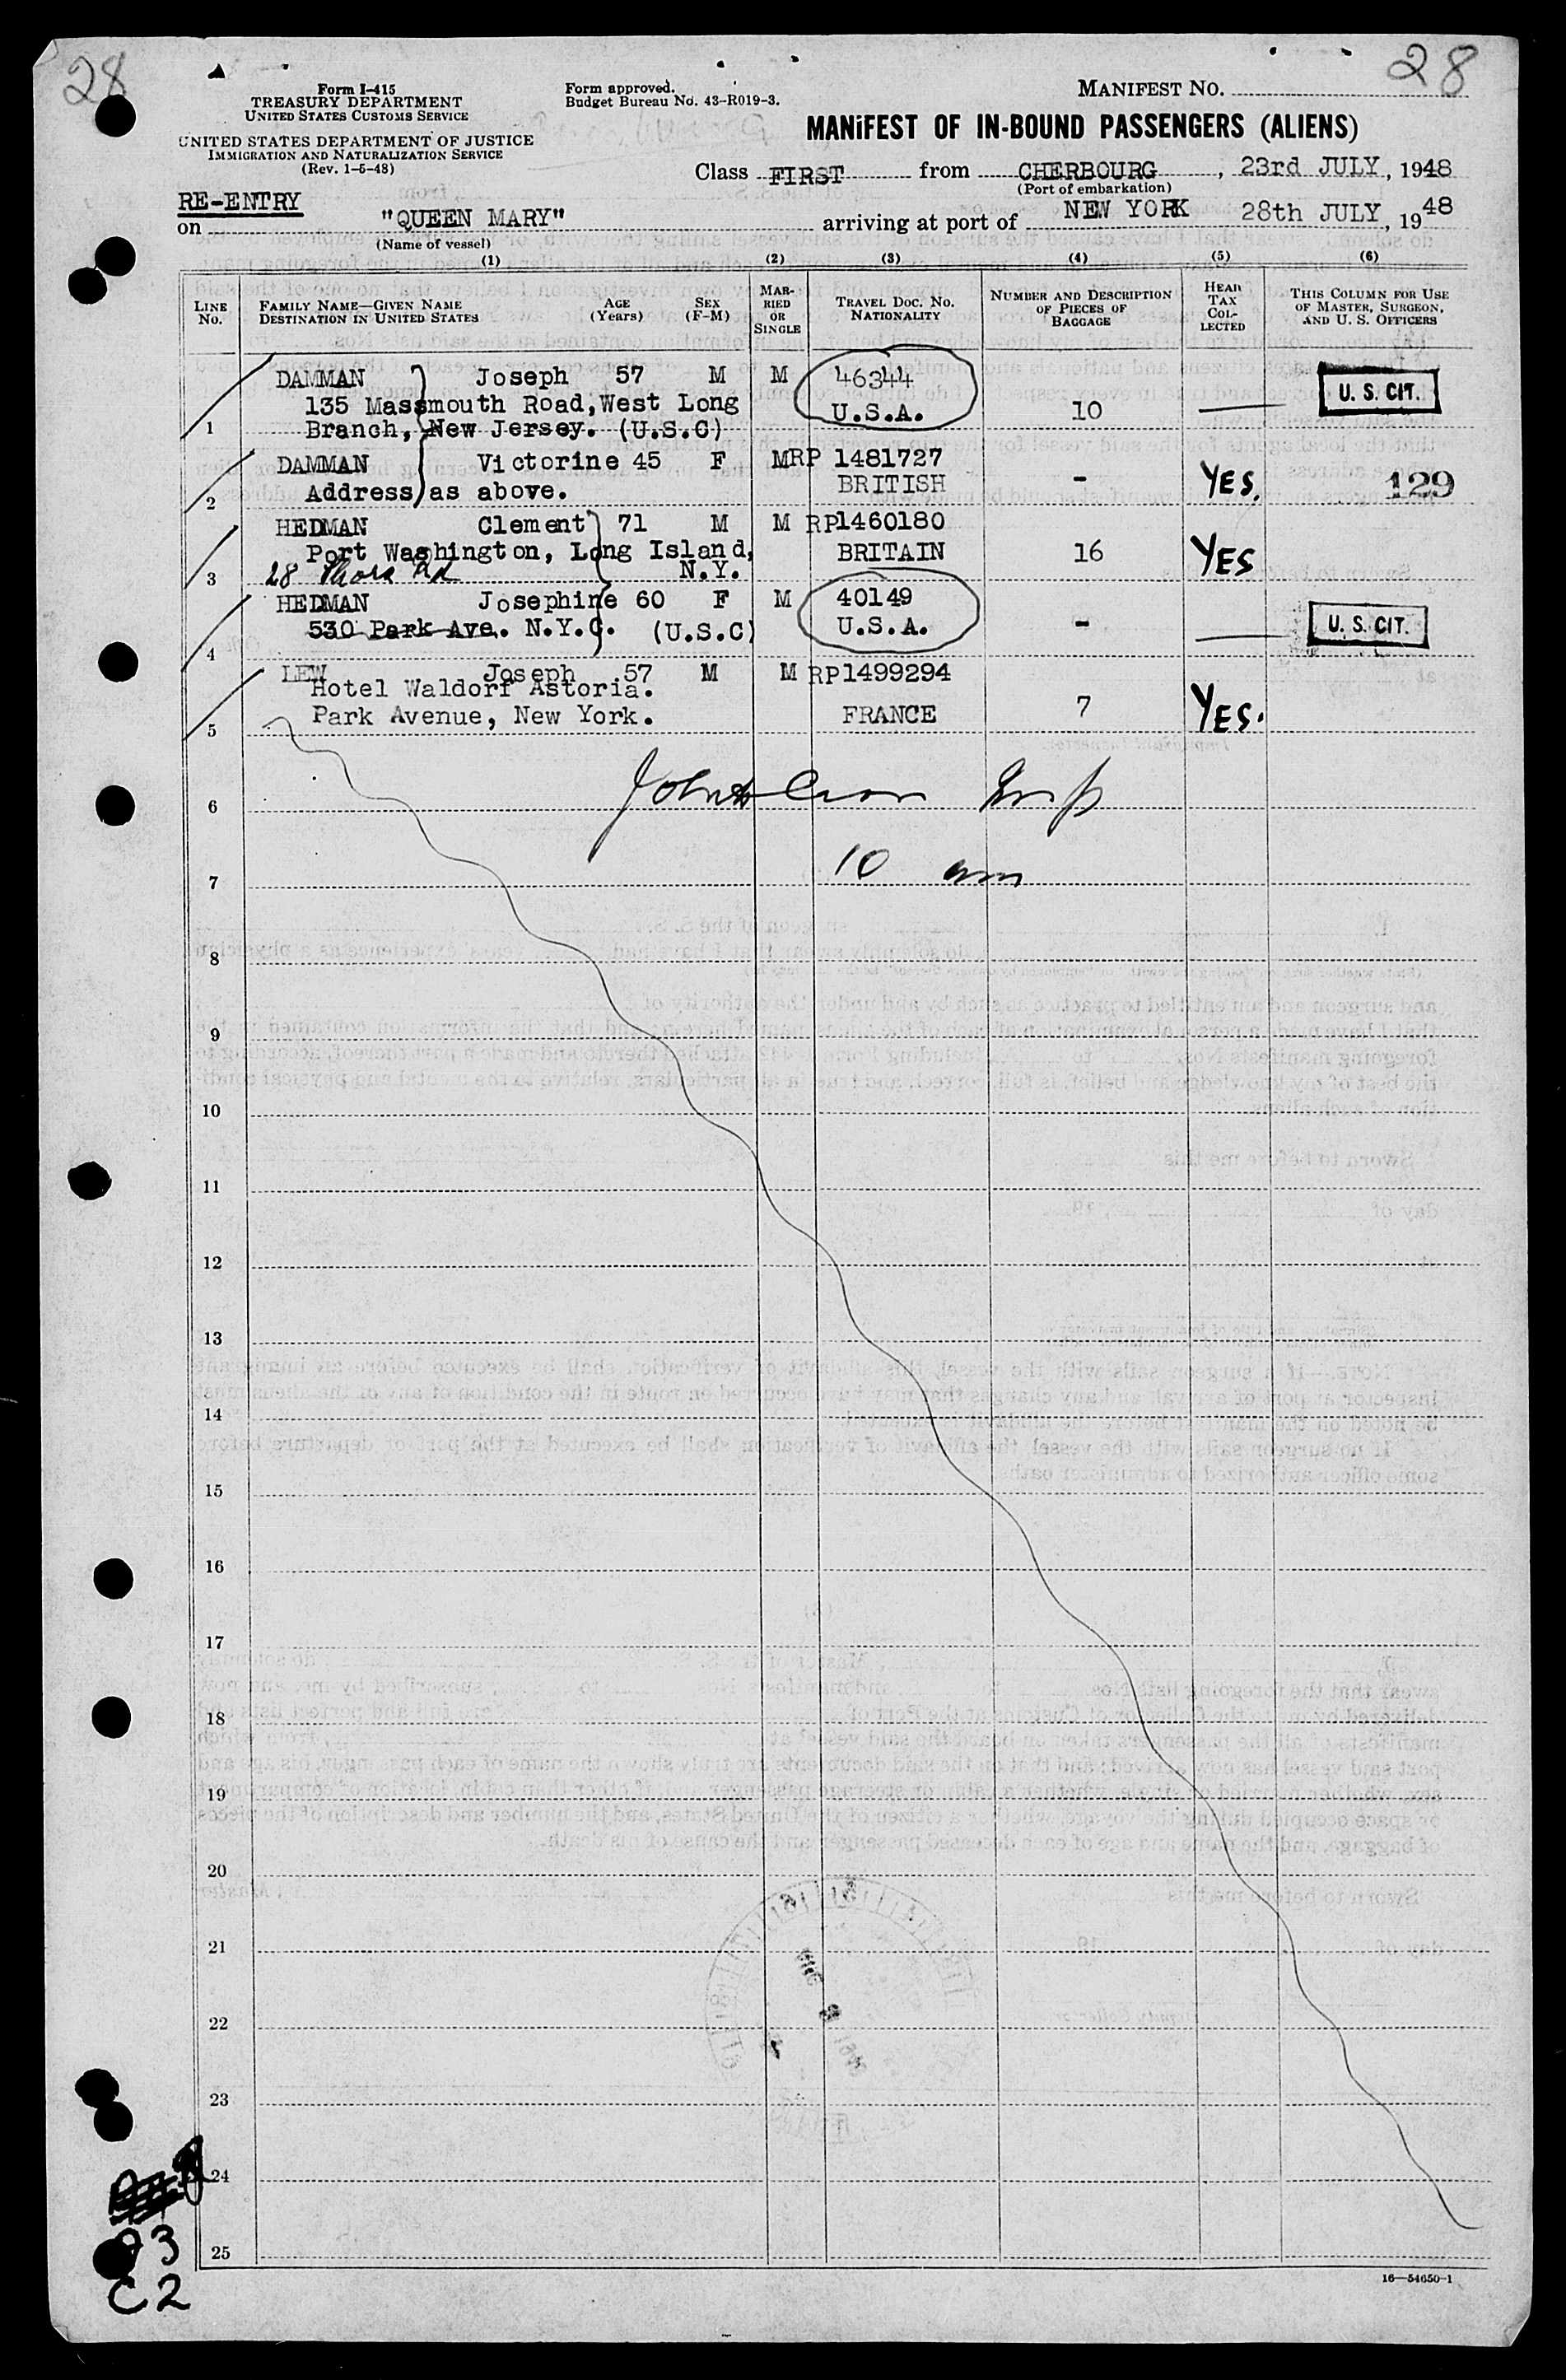 28
28
Form I-415
TREASURY DEPARTMENT
UNITED STATES CUSTOMS SERVICE
UNITED STATES DEPARTMENT OF JUSTICE
IMMIGRATION AND NATURALIZATION SERVICE
(Rev. 1-5-48)
Form approved.
Budget Bureau No. 43-R019-3.
MANIFEST NO.
MANIFEST OF IN-BOUND PASSENGERS (ALIENS)
Class FIRST from CHERBOURG, 23rd JULY, 1948
(Port of embarkation)
RE-ENTRY
on "QUEEN MARY" arriving at port of NEW YORK 28th JULY, 1948
(Name of vessel)
(1) (2) (3) (4) (5) (6)
LINE No. FAMILY NAME—GIVEN NAME DESTINATION IN UNITED STATES AGE (Years) SEX (F-M) MARRIED OR SINGLE TRAVEL DOC. NO. NATIONALITY NUMBER AND DESCRIPTION OF PIECES OF BAGGAGE HEAD TAX COLLECTED THIS COLUMN FOR USE OF MASTER, SURGEON, AND U. S. OFFICERS
DAMMAN Joseph 57 M M 46344 U. S. CIT.
135 Massmouth Road, West Long U.S.A. 10
1 Branch, New Jersey. (U.S.C)
DAMMAN Victorine 45 F M RP 1481727
2 Address as above. BRITISH - YES. 129
HEDMAN Clement 71 M M RP1460180
Port Washington, Long Island, BRITAIN 16 YES
3 28 Rd N.Y.
HEDMAN Josephine 60 F M 40149
530 Park Ave. N.Y.C. (U.S.C) U.S.A. - U. S. CIT.
4
LEW Joseph 57 M M RP1499294
Hotel Waldorf Astoria.
5 Park Avenue, New York. FRANCE 7 YES.
6
10 am
7
8
9
10
11
12
13
14
15
16
17
18
19
20
21
22
23
24
25
C2
16—54650-1